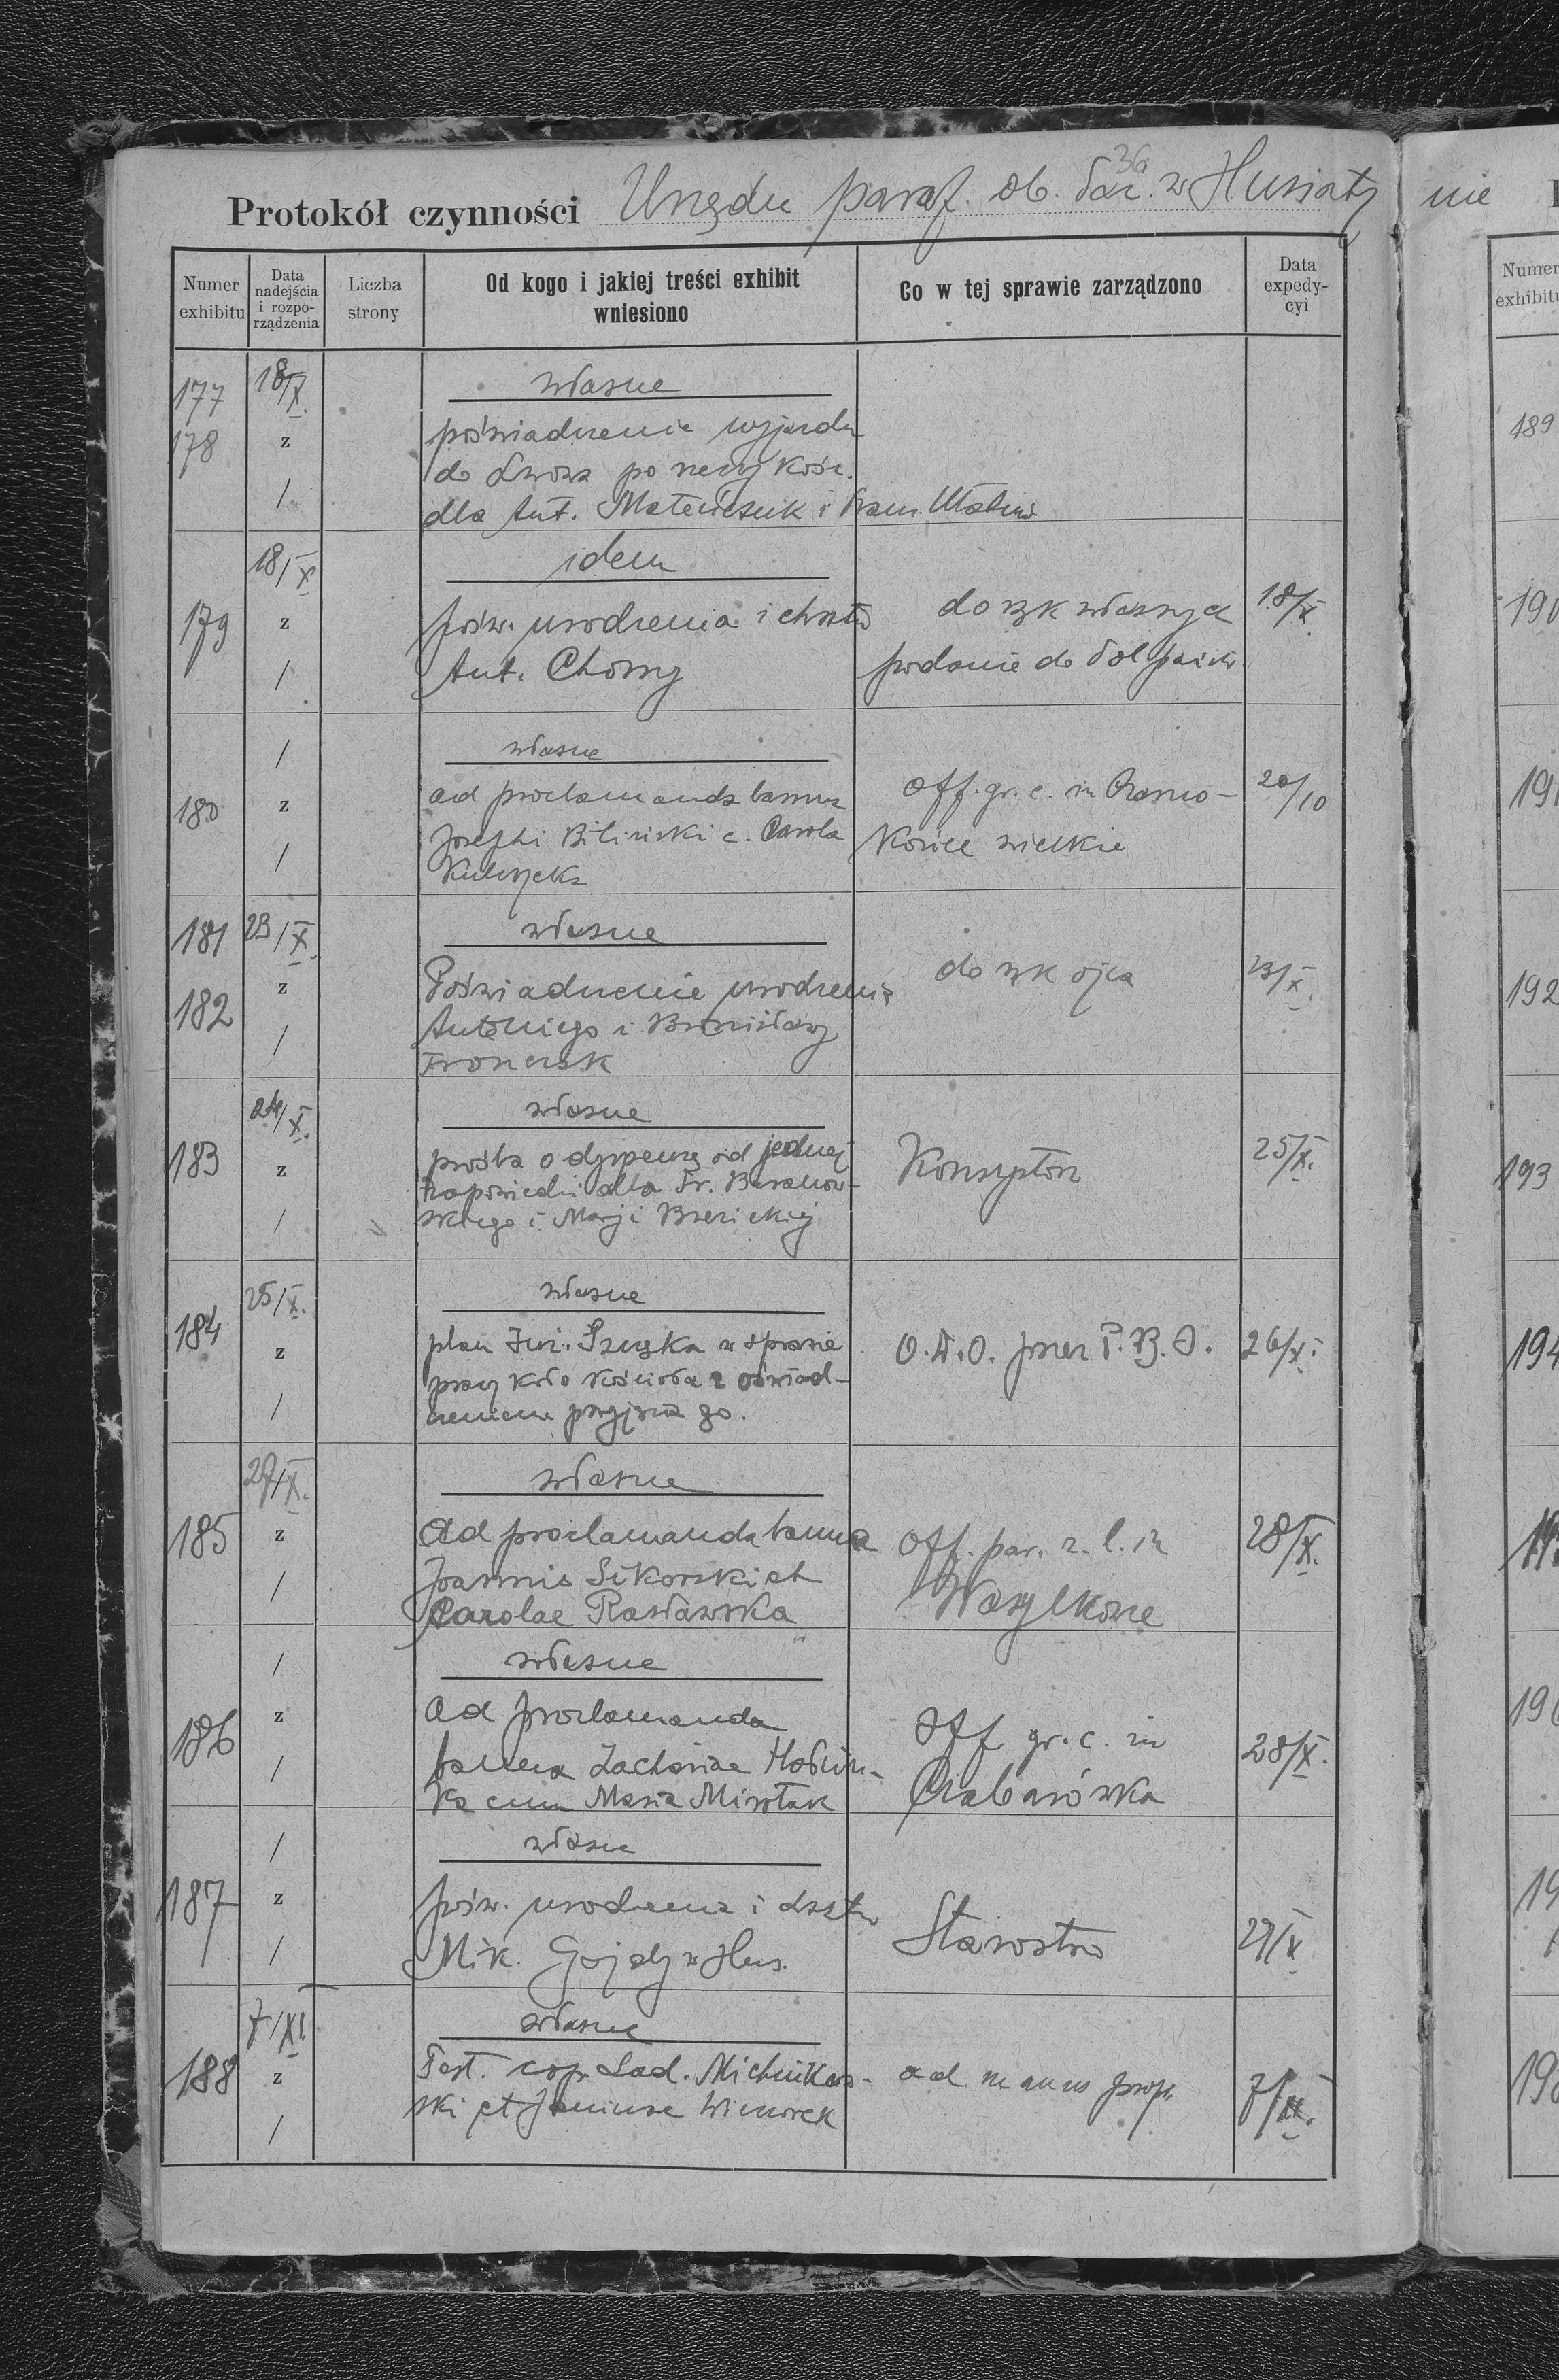 36
Protokół czynności Urzędu paraf. ob. łac. w Husiaty nie
Numer exhibitu
Data nadejścia i rozporządzenia
Liczba strony
Od kogo i jakiej treści exhibit wniesiono
Co w tej sprawie zarządzono
Data expedycyi
Numer exhibitu
177 18/X. własne
178 z poświadczenie wyjazdu
do Lwowa po rzeczy kośc.
/ dla Ant. Mateńczuk i
18/X idem
179 z pośw. urodzenia i chrztu do rąk własnych 18/X
/ Ant. Chomy podanie do
/ własne
180 z ad proclamanda banna Off. gr. c. in Krasno- 20/10
Josephi Biliński c. Carola końce wielkie
/ Kulczycka
181 23/X. własne
182 z Poświadczenie urodzenia do rąk ojca 23/X.
/ Antoniego i Bronisławy
Fronczak
24/X. własne
183 z prośba o dyspensę od jednej Konsystorz 25/X.
zapowiedzi dla Fr. Baranow-
/ skiego i Marji
25/X. własne
184 z plan Inż. w sprawie O. W. O. przez P. B. O. 26/X.
pracy koło kościoła z oświad-
/ czeniem przyjęcia go.
27/X. własne
185 z Ad proclamanda banna Off. par. r. l. in 28/X.
/ Joannis Sikorski et Wasylkowce
Carolae Rasławska
/ własne
186 z Ad proclamanda Off gr. c. in 28/X.
/ banna Zachariae Hołin-
ka cum Maria Mirołak Czabarówka
/ własne
187 z pośw. urodzenia i chrztu Starostwo 29/X
/ Mik. w Hus.
7/XI własne
188 z Test. cop. Lad. Michnikow- ad manus propr. 7/XI.
/ ski et Janinae Wieczorek
189
190
191
192
193
194